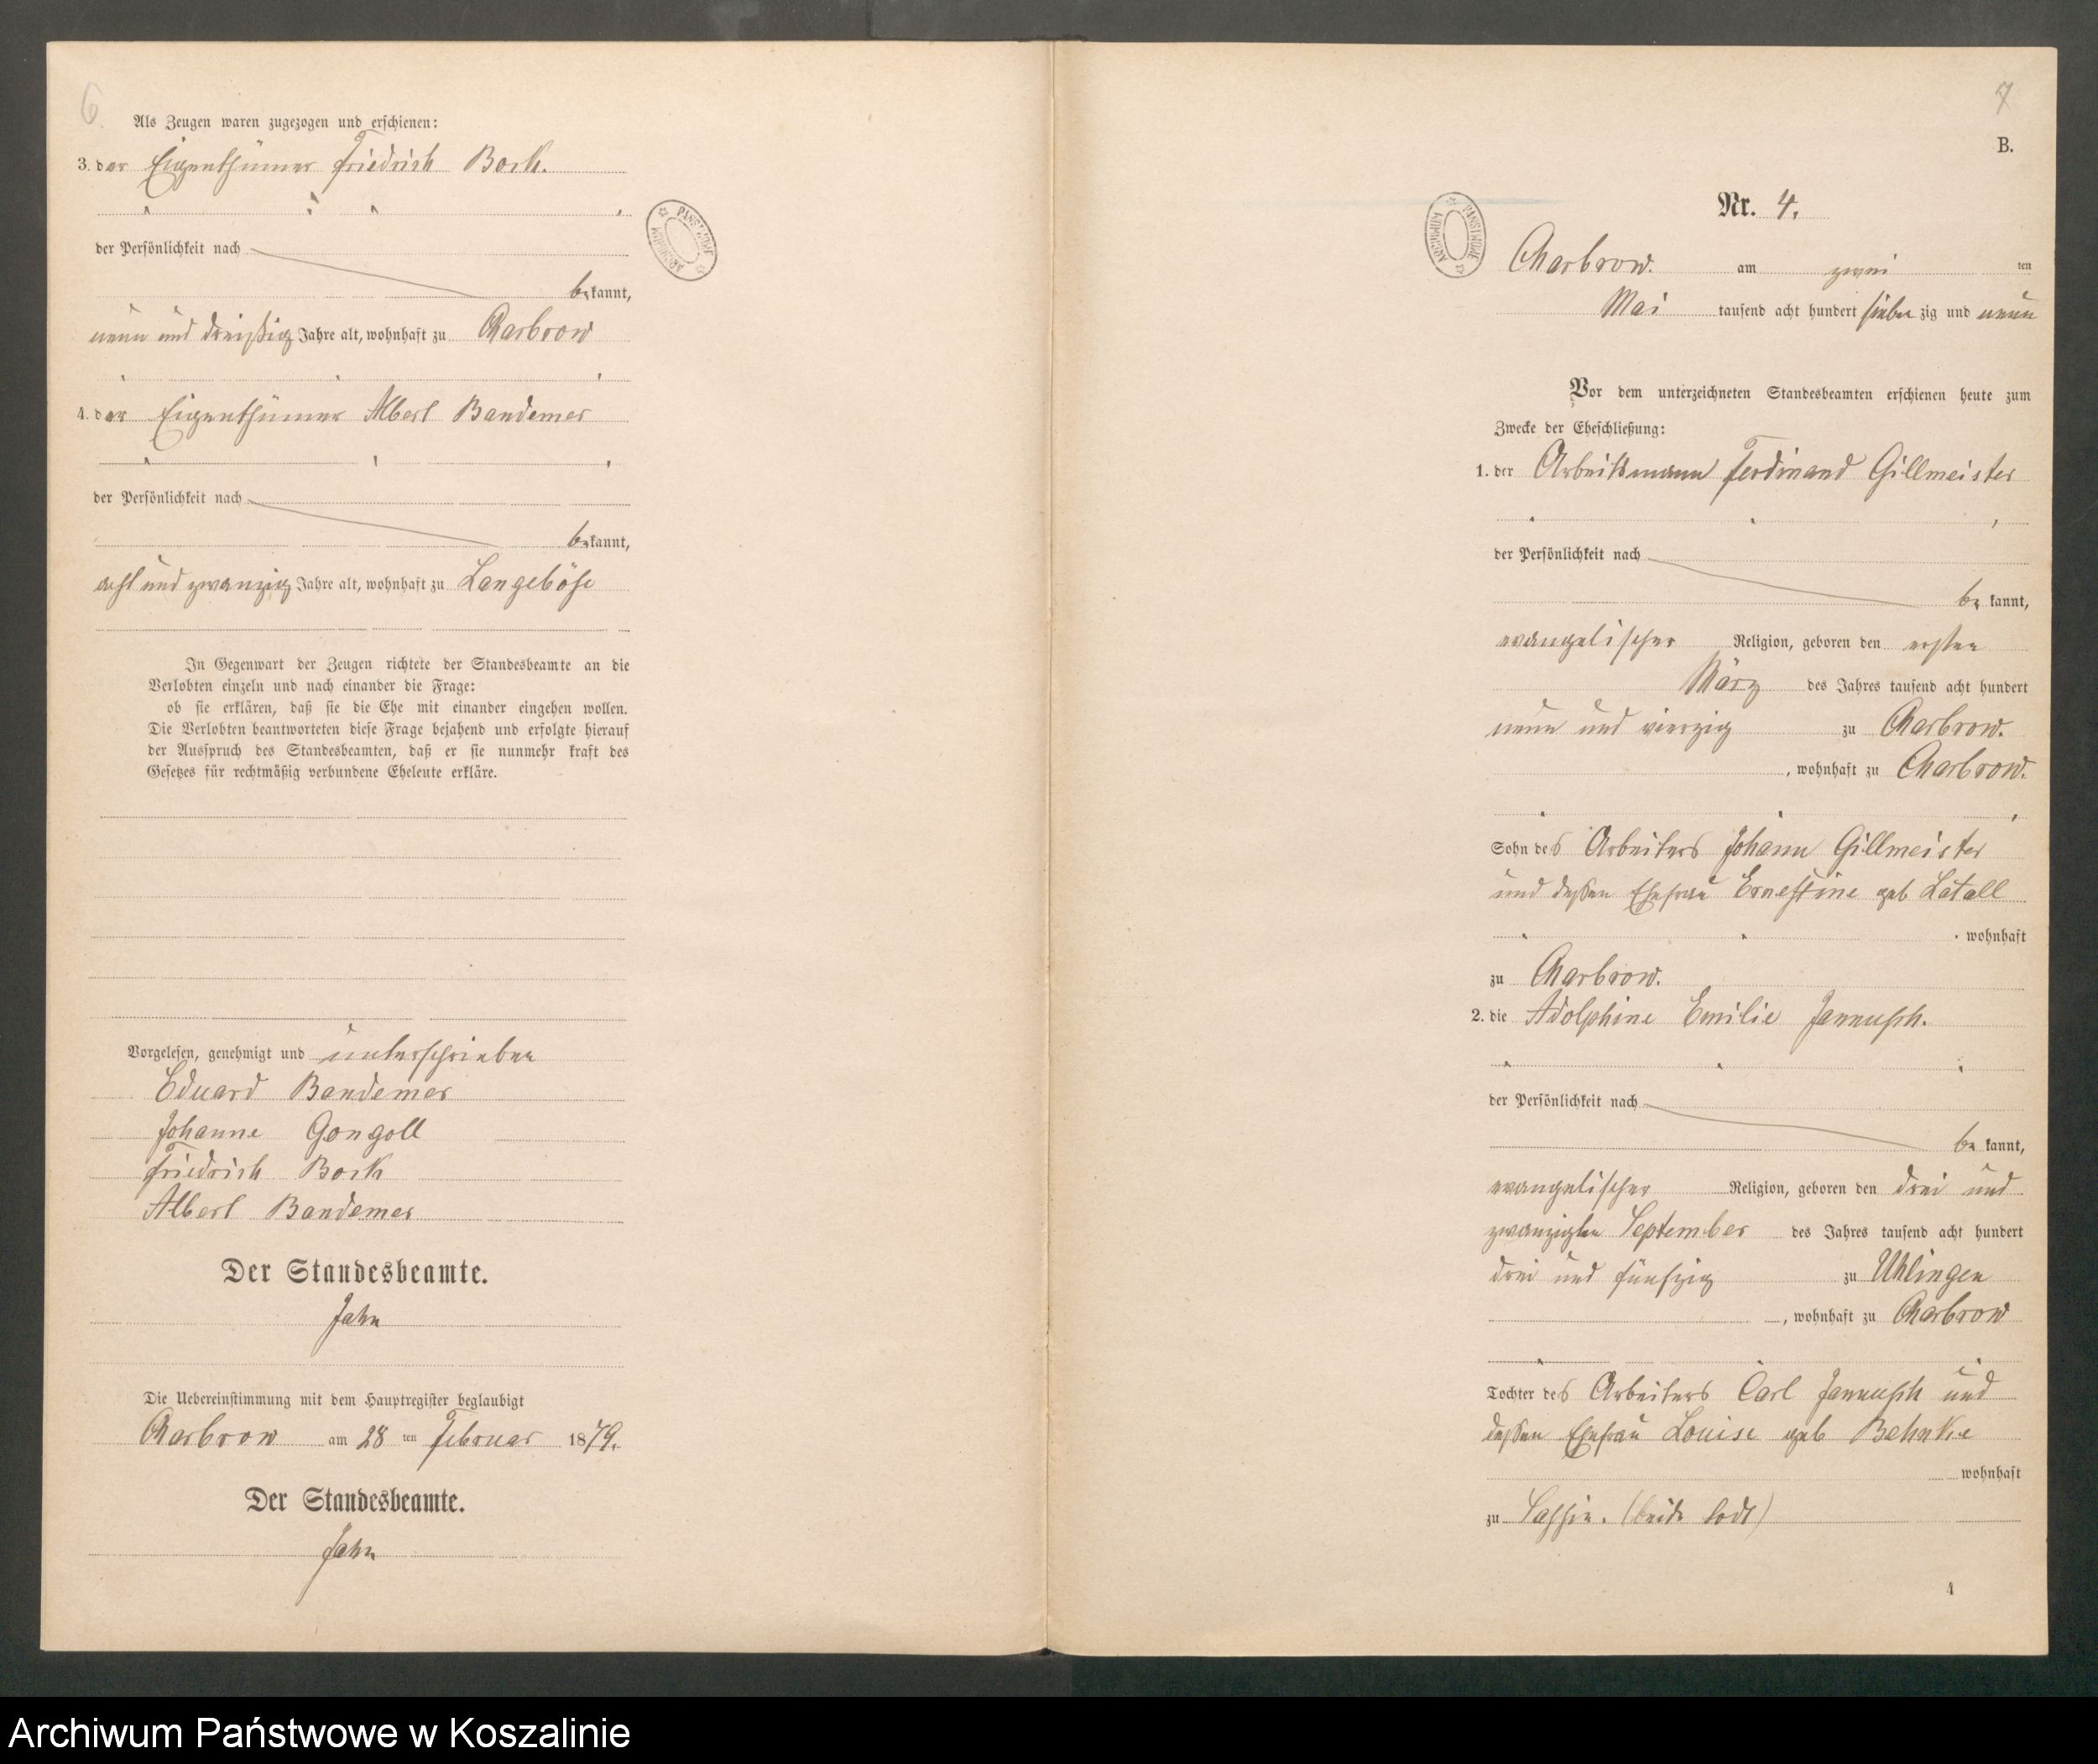 6
Als Zeugen waren zugezogen und erschienen:
3. der Eigenthümer Friedrich Bork.
der Persönlichkeit nach
bekannt,
neun und dreißig Jahre alt, wohnhaft zu Charbrow
4. der Eigenthümer Albert Bandemer
der Persönlichkeit nach
bekannt,
acht und zwanzig Jahre alt, wohnhaft zu Langeböse
In Gegenwart der Zeugen richtete der Standesbeamte an die
Verlobten einzeln und nach einander die Frage:
ob sie erklären, daß sie die Ehe mit einander eingehen wollen.
Die Verlobten beantworteten diese Frage bejahend und erfolgte hierauf
der Ausspruch des Standesbeamten, daß er sie nunmehr kraft des
Gesetzes für rechtmäßig verbundene Eheleute erkläre.
Vorgelesen, genehmigt und unterschrieben
Eduard Bandemer
Johanne Gongoll
Friedrich Bork
Albert Bandemer
Der Standesbeamte.
Jahn
Die Uebereinstimmung mit dem Hauptregister beglaubigt
Charbrow am 28 ten Februar 1879.
Der Standesbeamte.
Jahn
ARCHIWUM PAŃSTWOWE
7
B.
Nr. 4.
ARCHIWUM PAŃSTWOWE
Charbrow. am zwei ten
Mai tausend acht hundert sieben zig und neun
Vor dem unterzeichneten Standesbeamten erschienen heute zum
Zwecke der Eheschließung:
1. der Arbeitsmann Ferdinand Gillmeister
der Persönlichkeit nach
be kannt,
evangelischer Religion, geboren den ersten
März des Jahres tausend acht hundert
neun und vierzig zu Charbrow.
, wohnhaft zu Charbrow.
Sohn des Arbeiters Johann Gillmeister
und dessen Ehefrau Ernestine geb Latall
wohnhaft
zu Charbrow.
2. die Adolphine Emilie Jannusch.
der Persönlichkeit nach
be kannt,
evangelischer Religion, geboren den drei und
zwanzigten September des Jahres tausend acht hundert
drei und fünfzig zu Uhlingen
, wohnhaft zu Charbrow
Tochter des Arbeiters Carl Jannusch und
dessen Ehefrau Louise geb Behnke
wohnhaft
zu Sassin. (beide todt)
4
Archiwum Państwowe w Koszalinie